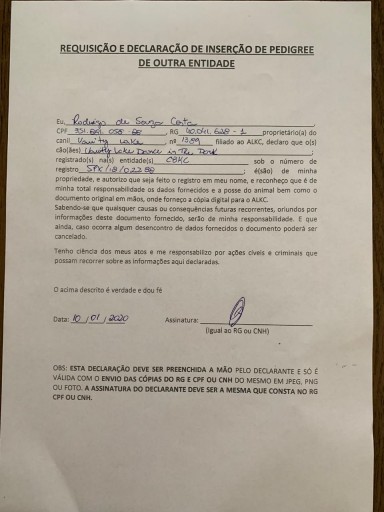 REQUISIÇÃO E DECLARAÇÃO DE INSERÇÃO DE PEDIGREE
DE OUTRA ENTIDADE
Eu, Rodrigo de Souza Costa
CPF RG proprietário(a) do
canil Vanity Lake, nº 1389 filiado ao ALKC, declaro que o(s)
cão(ães) Lake Dance in The Dark;
registrado(s) na(s) entidade(s) CBKC sob o número de
registro SPX/18/02288; é(são) de minha
propriedade, e autorizo que seja feito o registro em meu nome, e reconheço que é de
minha total responsabilidade os dados fornecidos e a posse do animal bem como o
documento original em mãos, onde forneço a cópia digital para o ALKC.
Sabendo-se que quaisquer causas ou consequências futuras recorrentes, oriundos por
informações deste documento fornecido, serão de minha responsabilidade. E que
ainda, caso ocorra algum desencontro de dados fornecidos o documento poderá ser
cancelado.
Tenho ciência dos meus atos e me responsabilizo por ações cíveis e criminais que
possam recorrer sobre as informações aqui declaradas.
O acima descrito é verdade e dou fé
Data: 10/01/2020 Assinatura:
(Igual ao RG ou CNH)
OBS: ESTA DECLARAÇÃO DEVE SER PREENCHIDA A MÃO PELO DECLARANTE E SÓ É
VÁLIDA COM O ENVIO DAS CÓPIAS DO RG E CPF OU CNH DO MESMO EM JPEG, PNG
OU FOTO. A ASSINATURA DO DECLARANTE DEVE SER A MESMA QUE CONSTA NO RG
CPF OU CNH.